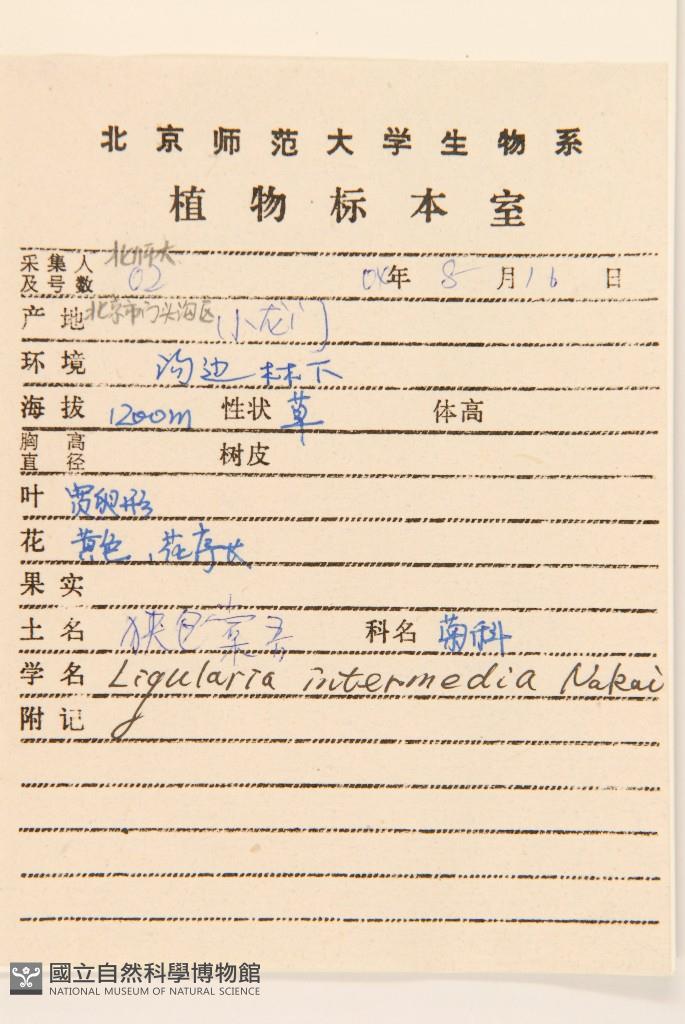 北京师范大学生物系
植物标本室
采集人及号数 北师大 02 年 8 月 16 日
产地 北京市门头沟区 小龙门
环境 沟边林下
海拔 1200m 性状 草 体高
胸高直径 树皮
叶 肾卵形
花 黄色、花序长
果实
土名 狭包橐吾 科名 菊科
学名 Ligularia intermedia Nakai
附记
國立自然科學博物館
NATIONAL MUSEUM OF NATURAL SCIENCE